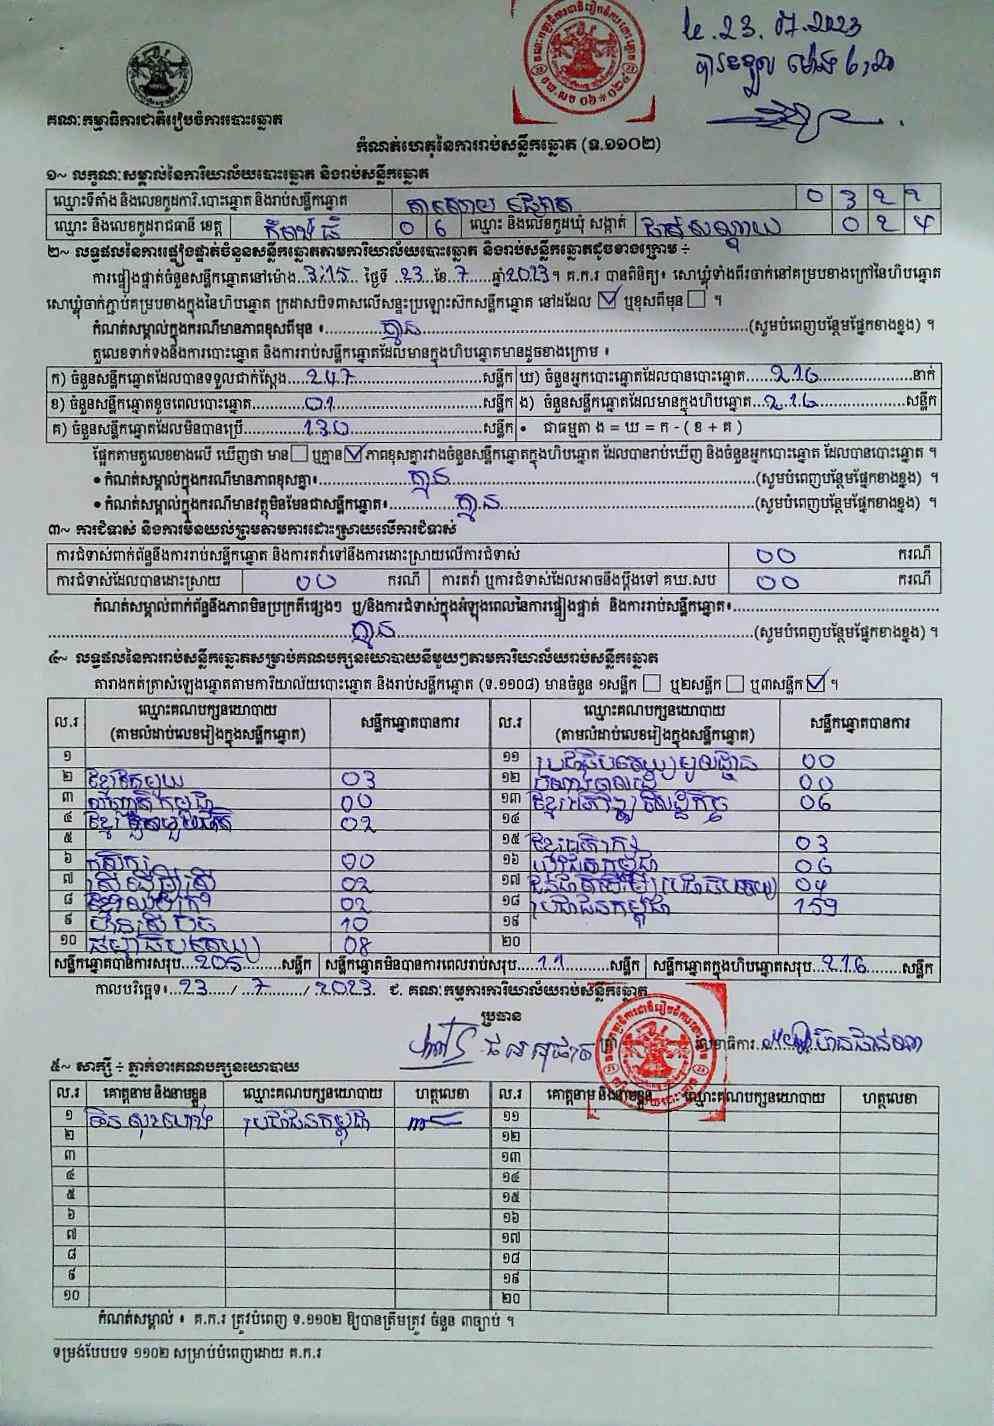 le. 23. 07. 2023
ម៉ោង 6,20
គណៈកម្មាធិការជាតិរៀបចំការបោះឆ្នោត
កំណត់ហេតុនៃការរាប់សន្លឹកឆ្នោត (ទ.១១០២)
១~ លក្ខណៈសម្គាល់នៃការិយាល័យបោះឆ្នោត និងរាប់សន្លឹកឆ្នោត
ឈ្មោះទីតាំង និងលេខកូដការិ.បោះឆ្នោត និងរាប់សន្លឹកឆ្នោត 0 3 2
ឈ្មោះ និងលេខកូដរាជធានី ខេត្ត កំពង់ធំ 0 6 ឈ្មោះ និងលេខកូដឃុំ សង្កាត់ 0 2 ៤
២~ លទ្ធផលនៃការផ្ទៀងផ្ទាត់ចំនួនសន្លឹកឆ្នោតតាមការិយាល័យបោះឆ្នោត និងរាប់សន្លឹកឆ្នោតដូចខាងក្រោម ÷
ការផ្ទៀងផ្ទាត់ចំនួនសន្លឹកឆ្នោតនៅម៉ោង 3:15 ថ្ងៃទី 23 ខែ 7 ឆ្នាំ 2023 ។ គ.ក.រ បានពិនិត្យ៖ សោឃ្លុំទាំងពីរចាក់នៅគម្របខាងក្រៅនៃហិបឆ្នោត
សោឃ្លុំចាក់ភ្ជាប់គម្របខាងក្នុងនៃហិបឆ្នោត ក្រដាសបិទពាសលើសន្ទះប្រឡោះសិកសន្លឹកឆ្នោត នៅដដែល ☑ ឬខុសពីមុន ☐ ។
កំណត់សម្គាល់ក្នុងករណីមានភាពខុសពីមុន ៖ គ្មាន (សូមបំពេញបន្ថែមផ្នែកខាងខ្នង) ។
តួលេខទាក់ទងនឹងការបោះឆ្នោត និងការរាប់សន្លឹកឆ្នោតដែលមានក្នុងហិបឆ្នោតមានដូចខាងក្រោម ៖
ក) ចំនួនសន្លឹកឆ្នោតដែលបានទទួលជាក់ស្តែង 247 សន្លឹក ឃ) ចំនួនអ្នកបោះឆ្នោតដែលបានបោះឆ្នោត 216 នាក់
ខ) ចំនួនសន្លឹកឆ្នោតខូចពេលបោះឆ្នោត 01 សន្លឹក ង) ចំនួនសន្លឹកឆ្នោតដែលមានក្នុងហិបឆ្នោត 216 សន្លឹក
គ) ចំនួនសន្លឹកឆ្នោតដែលមិនបានប្រើ 130 សន្លឹក • ជាធម្មតា ង = ឃ = ក - ( ខ + គ )
ផ្អែកតាមតួលេខខាងលើ ឃើញថា មាន ☐ ឬគ្មាន ☑ ភាពខុសគ្នារវាងចំនួនសន្លឹកឆ្នោតក្នុងហិបឆ្នោត ដែលបានរាប់ឃើញ និងចំនួនអ្នកបោះឆ្នោត ដែលបានបោះឆ្នោត ។
• កំណត់សម្គាល់ក្នុងករណីមានភាពខុសគ្នា៖ គ្មាន (សូមបំពេញបន្ថែមផ្នែកខាងខ្នង) ។
• កំណត់សម្គាល់ក្នុងករណីមានវត្ថុមិនមែនជាសន្លឹកឆ្នោត៖ គ្មាន (សូមបំពេញបន្ថែមផ្នែកខាងខ្នង) ។
៣~ ការជំទាស់ និងការមិនយល់ព្រមតាមការដោះស្រាយលើការជំទាស់
ការជំទាស់ពាក់ព័ន្ធនឹងការរាប់សន្លឹកឆ្នោត និងការតវ៉ាទៅនឹងការដោះស្រាយលើការជំទាស់ 00 ករណី
ការជំទាស់ដែលបានដោះស្រាយ 00 ករណី ការតវ៉ា ឬការជំទាស់ដែលអាចនឹងប្តឹងទៅ គឃ.សប 00 ករណី
កំណត់សម្គាល់ពាក់ព័ន្ធនឹងភាពមិនប្រក្រតីផ្សេងៗ ឬ/និងការជំទាស់ក្នុងអំឡុងពេលនៃការផ្ទៀងផ្ទាត់ និងការរាប់សន្លឹកឆ្នោត៖
គ្មាន (សូមបំពេញបន្ថែមផ្នែកខាងខ្នង) ។
៤~ លទ្ធផលនៃការរាប់សន្លឹកឆ្នោតសម្រាប់គណបក្សនយោបាយនីមួយៗតាមការិយាល័យរាប់សន្លឹកឆ្នោត
តារាងកត់ត្រាសំឡេងឆ្នោតតាមការិយាល័យបោះឆ្នោត និងរាប់សន្លឹកឆ្នោត (ទ.១១០៨) មានចំនួន ១សន្លឹក ☐ ឬ២សន្លឹក ☐ ឬ៣សន្លឹក ☑ ។
ល.រ ឈ្មោះគណបក្សនយោបាយ (តាមលំដាប់លេខរៀងក្នុងសន្លឹកឆ្នោត) សន្លឹកឆ្នោតបានការ ល.រ ឈ្មោះគណបក្សនយោបាយ (តាមលំដាប់លេខរៀងក្នុងសន្លឹកឆ្នោត) សន្លឹកឆ្នោតបានការ
១ ១១ ប្រជាធិបតេយ្យមូលដ្ឋាន 00
២ ខ្មែរតែមួយ 03 ១២ 00
៣ កម្ពុជា 00 ១៣ ខ្មែរអភិវឌ្ឍសេដ្ឋកិច្ច 06
៤ ខ្មែររួបរួមជាតិ 02 ១៤
៥ ១៥ 03
៦ កសិករ 00 ១៦ កម្ពុជា 06
៧ 02 ១៧ ប្រជាធិបតេយ្យ 04
៨ 02 ១៨ ប្រជាជនកម្ពុជា 159
៩ 10 ១៩
១០ ធម្មាធិបតេយ្យ 08 ២០
សន្លឹកឆ្នោតបានការសរុប 205 សន្លឹក សន្លឹកឆ្នោតមិនបានការពេលរាប់សរុប 11 សន្លឹក សន្លឹកឆ្នោតក្នុងហិបឆ្នោតសរុប 216 សន្លឹក
កាលបរិច្ឆេទ៖ 23 / 7 / 2023 ជ. គណៈកម្មការការិយាល័យរាប់សន្លឹកឆ្នោត
ប្រធាន
លេខាធិការ
៥~ សាក្សី ÷ ភ្នាក់ងារគណបក្សនយោបាយ
ល.រ គោត្តនាម និងនាមខ្លួន ឈ្មោះគណបក្សនយោបាយ ហត្ថលេខា ល.រ គោត្តនាម និងនាមខ្លួន ឈ្មោះគណបក្សនយោបាយ ហត្ថលេខា
១ ប្រជាជនកម្ពុជា ១១
២ ១២
៣ ១៣
៤ ១៤
៥ ១៥
៦ ១៦
៧ ១៧
៨ ១៨
៩ ១៩
១០ ២០
កំណត់សម្គាល់ ៖ គ.ក.រ ត្រូវបំពេញ ទ.១១០២ ឱ្យបានត្រឹមត្រូវ ចំនួន ៣ច្បាប់ ។
ទម្រង់បែបបទ ១១០២ សម្រាប់បំពេញដោយ គ.ក.រ